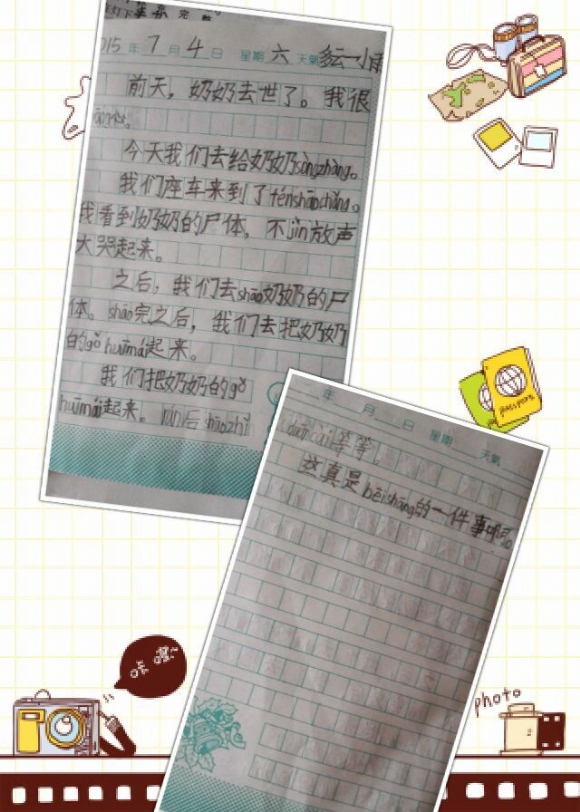 2015年7月4日 星期六 天氣多云一小雨
前天，奶奶去世了。我很
今天我们去给奶奶sòngzhàng。
我们座车来到了fénshāochǎng。
我看到奶奶的尸体，不jìn放声
大哭起来。
之后，我们去shāo奶奶的尸
体。shāo完之后，我们去把奶奶
的gǔ huīmái起来。
我们把奶奶的gǔ
huīmái起来。rán后shāozhǐ
年 月 日 星期 天氣
等等
这真是bēishāng的一件事啊。
咔嚓~
passport
photo